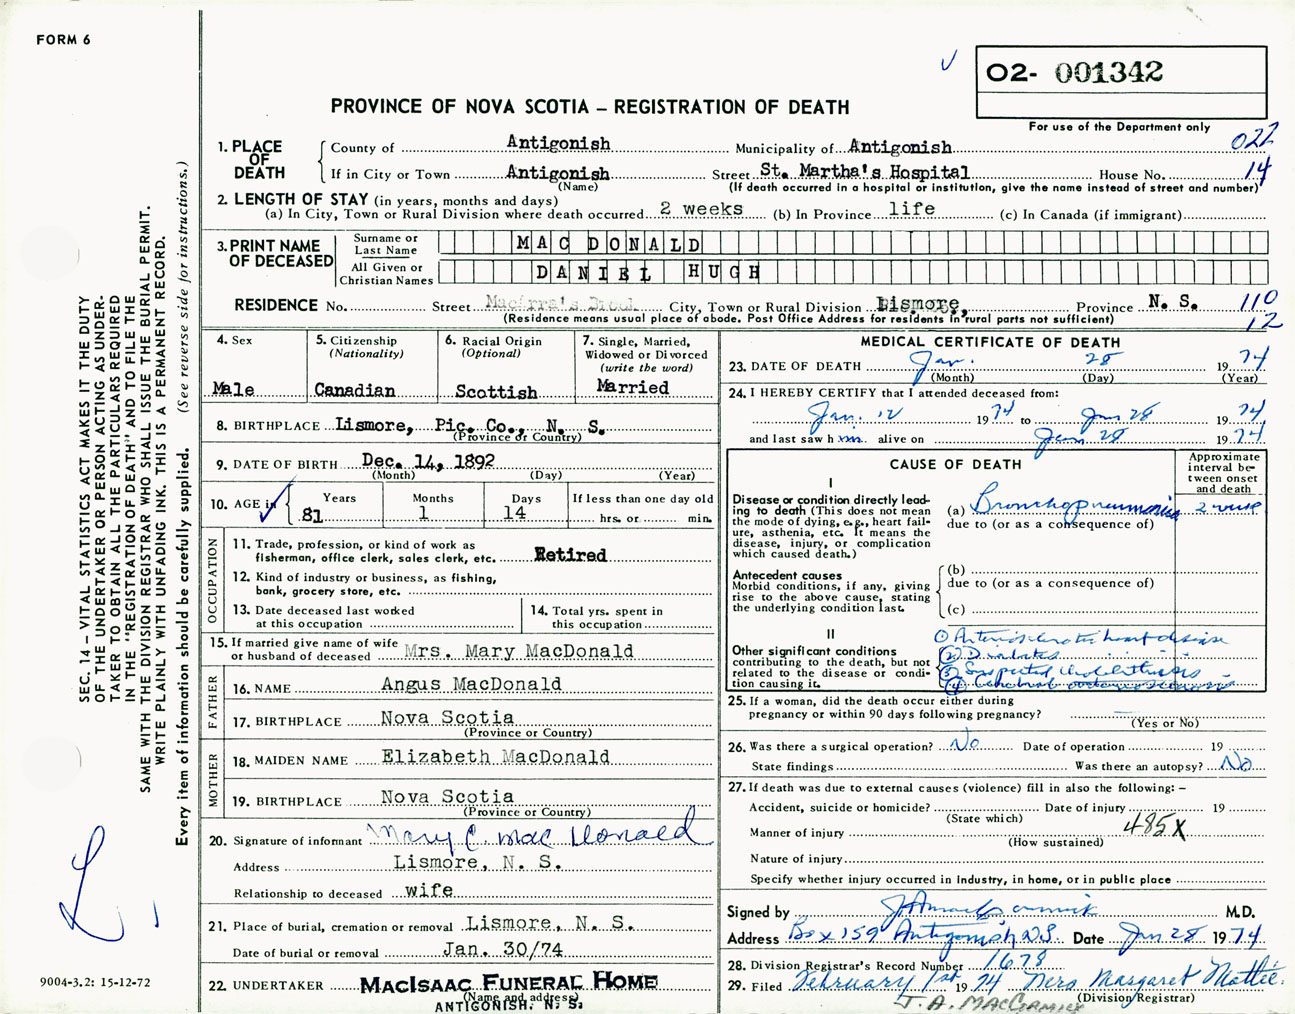 FORM 6
O2- 001342
For use of the Department only
PROVINCE OF NOVA SCOTIA – REGISTRATION OF DEATH
022
1. PLACE OF DEATH County of Antigonish Municipality of Antigonish
If in City or Town Antigonish Street St. Martha's Hospital House No. 14
(Name) (If death occurred in a hospital or institution, give the name instead of street and number)
2. LENGTH OF STAY (in years, months and days)
(a) In City, Town or Rural Division where death occurred 2 weeks (b) In Province life (c) In Canada (if immigrant)
3. PRINT NAME OF DECEASED
Surname or Last Name MAC DONALD
All Given or Christian Names DANIEL HUGH
RESIDENCE No. Street City, Town or Rural Division Lismore, Province N. S. 110
(Residence means usual place of abode. Post Office Address for residents in rural parts not sufficient) 12
4. Sex Male
5. Citizenship (Nationality) Canadian
6. Racial Origin (Optional) Scottish
7. Single, Married, Widowed or Divorced (write the word) Married
8. BIRTHPLACE Lismore, Pic. Co., N. S.
(Province or Country)
9. DATE OF BIRTH Dec. 14, 1892
(Month) (Day) (Year)
10. AGE in Years 81 Months 1 Days 14 If less than one day old hrs. or min.
OCCUPATION
11. Trade, profession, or kind of work as fisherman, office clerk, sales clerk, etc. Retired
12. Kind of industry or business, as fishing, bank, grocery store, etc.
13. Date deceased last worked at this occupation
14. Total yrs. spent in this occupation
15. If married give name of wife or husband of deceased Mrs. Mary MacDonald
FATHER
16. NAME Angus MacDonald
17. BIRTHPLACE Nova Scotia
(Province or Country)
MOTHER
18. MAIDEN NAME Elizabeth MacDonald
19. BIRTHPLACE Nova Scotia
(Province or Country)
20. Signature of informant Mary C. Mac Donald
Address Lismore, N. S.
Relationship to deceased wife
21. Place of burial, cremation or removal Lismore, N. S.
Date of burial or removal Jan. 30/74
22. UNDERTAKER MACISAAC FUNERAL HOME
(Name and address)
ANTIGONISH. N. S.
MEDICAL CERTIFICATE OF DEATH
23. DATE OF DEATH Jan. 28 1974
(Month) (Day) (Year)
24. I HEREBY CERTIFY that I attended deceased from:
Jan. 12 1974 to Jan 28 1974
and last saw h im alive on Jan 28 1974
CAUSE OF DEATH
Approximate interval between onset and death
I
Disease or condition directly leading to death (This does not mean the mode of dying, e.g., heart failure, asthenia, etc. It means the disease, injury, or complication which caused death.)
(a) Bronchopneumonia 2 weeks
due to (or as a consequence of)
Antecedent causes
Morbid conditions, if any, giving rise to the above cause, stating the underlying condition last.
(b)
due to (or as a consequence of)
(c)
II
Other significant conditions contributing to the death, but not related to the disease or condition causing it.
① Arteriosclerotic heart disease
② Diabetes
③ Suspected cholelithiasis
④ Cerebral arteriosclerosis
25. If a woman, did the death occur either during pregnancy or within 90 days following pregnancy? —
(Yes or No)
26. Was there a surgical operation? No Date of operation 19
State findings Was there an autopsy? No
27. If death was due to external causes (violence) fill in also the following: –
Accident, suicide or homicide? Date of injury 19
(State which)
Manner of injury 485X
(How sustained)
Nature of injury
Specify whether injury occurred in Industry, in home, or in public place
Signed by J. A. MacCormick M.D.
Address Box 159 Antigonish N.S. Date Jan 28 1974
28. Division Registrar's Record Number 1678
29. Filed February 1st 1974 Margaret
(Division Registrar)
J. A. MACCORMICK
SEC. 14 – VITAL STATISTICS ACT MAKES IT THE DUTY
OF THE UNDERTAKER OR PERSON ACTING AS UNDER-
TAKER TO OBTAIN ALL THE PARTICULARS REQUIRED
IN THE "REGISTRATION OF DEATH" AND TO FILE THE
SAME WITH THE DIVISION REGISTRAR WHO SHALL ISSUE THE BURIAL PERMIT.
WRITE PLAINLY WITH UNFADING INK. THIS IS A PERMANENT RECORD.
Every item of information should be carefully supplied. (See reverse side for instructions.)
9004-3.2: 15-12-72